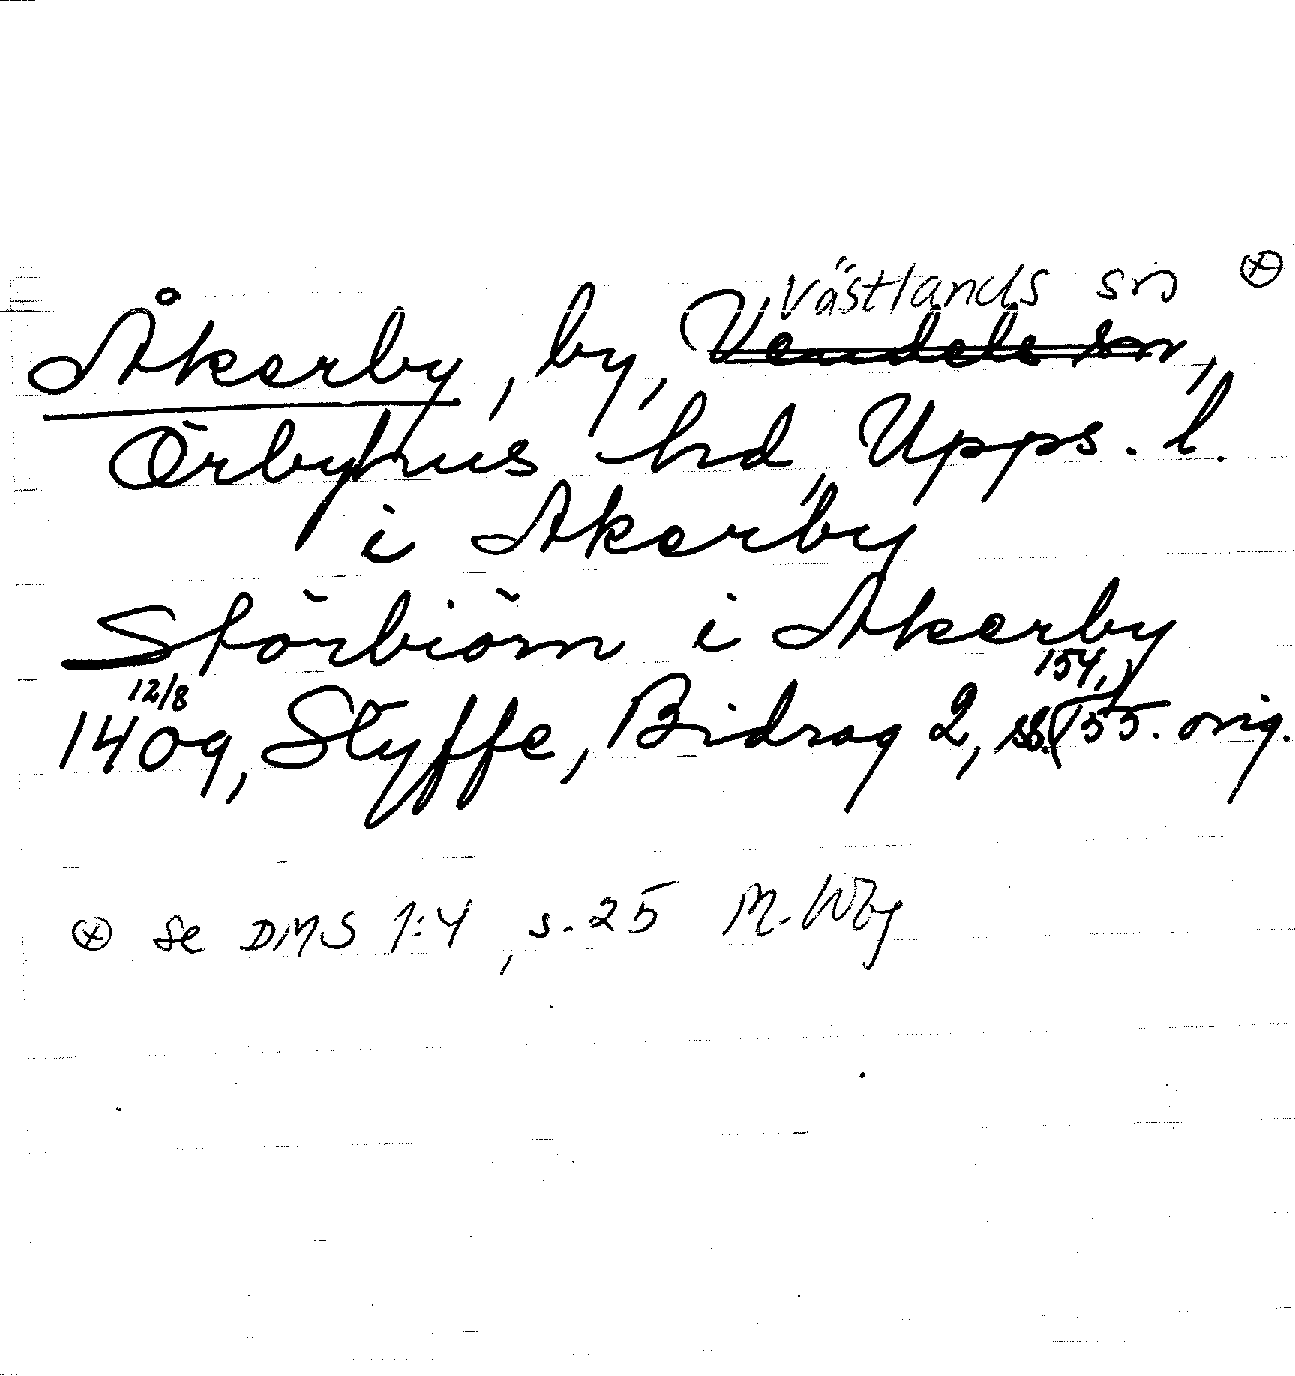 Västlands sn ⊕
Åkerby, by, Vendels sn,
Örbyhus hd, Upps. l.
i Akerby
Störbiörn i Akerby
12/8 154,
1409, Styffe, Bidrag 2, s. 155. orig.
⊗ Se DMS 1:4, s. 25 M. Wbg